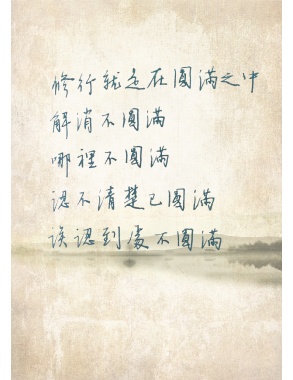 修行就是在圓滿之中
解消不圓滿
哪裡不圓滿
認不清楚已圓滿
誤認到處不圓滿